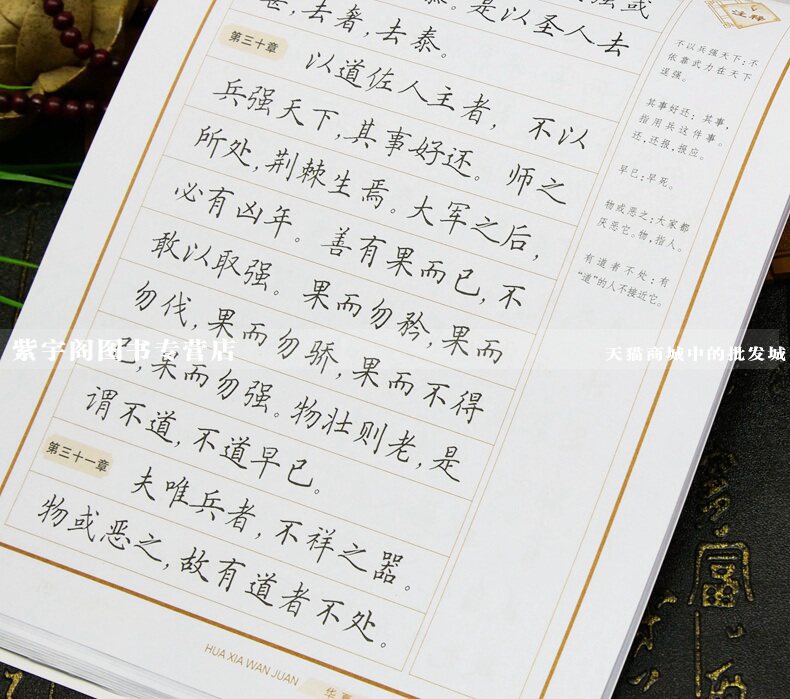 甚,去奢,去泰。是以圣人去
第三十章
以道佐人主者,不以
兵强天下,其事好还。师之
所处,荆棘生焉。大军之后,
必有凶年。善有果而已,不
敢以取强。果而勿矜,果而
勿伐,果而勿骄,果而不得
已,果而勿强。物壮则老,是
谓不道,不道早已。
第三十一章
夫唯兵者,不祥之器。
物或恶之,故有道者不处。
注释
不以兵强天下:不
依靠武力在天下
逞强。
其事好还:其事,
指用兵这件事。
还,还报,报应。
早已:早死。
物或恶之:大家都
厌恶它。物,指人。
有道者不处:有
“道”的人不接近它。
HUA XIA WAN JUAN
紫宇阁图书专营店
天猫商城中的批发城